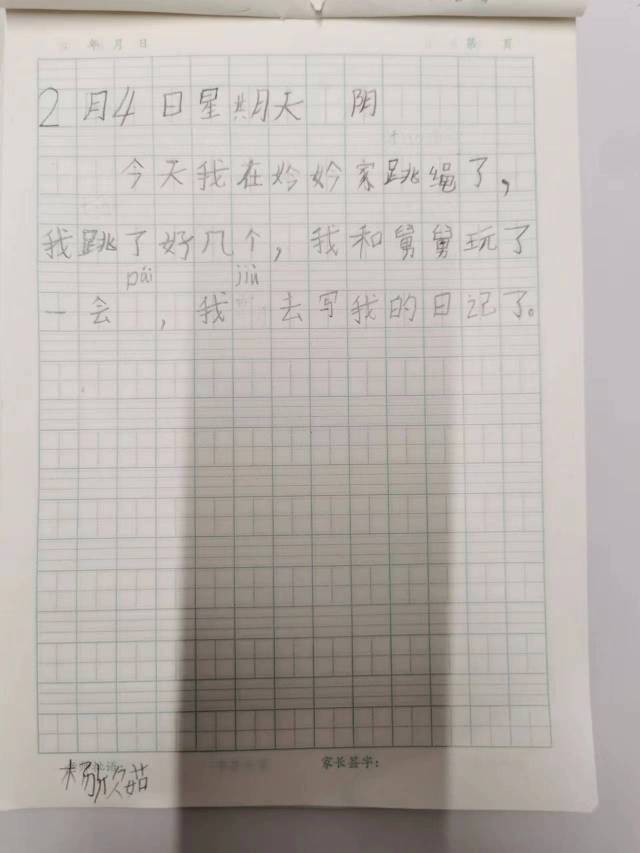 年 月 日 第 页
2月4日星期天 阴
今天我在妗妗家跳绳了，
我跳了好几个，我和舅舅玩了
pái jiù
一会 ，我 去写我的日记了。
家长签字：
杨欣茹